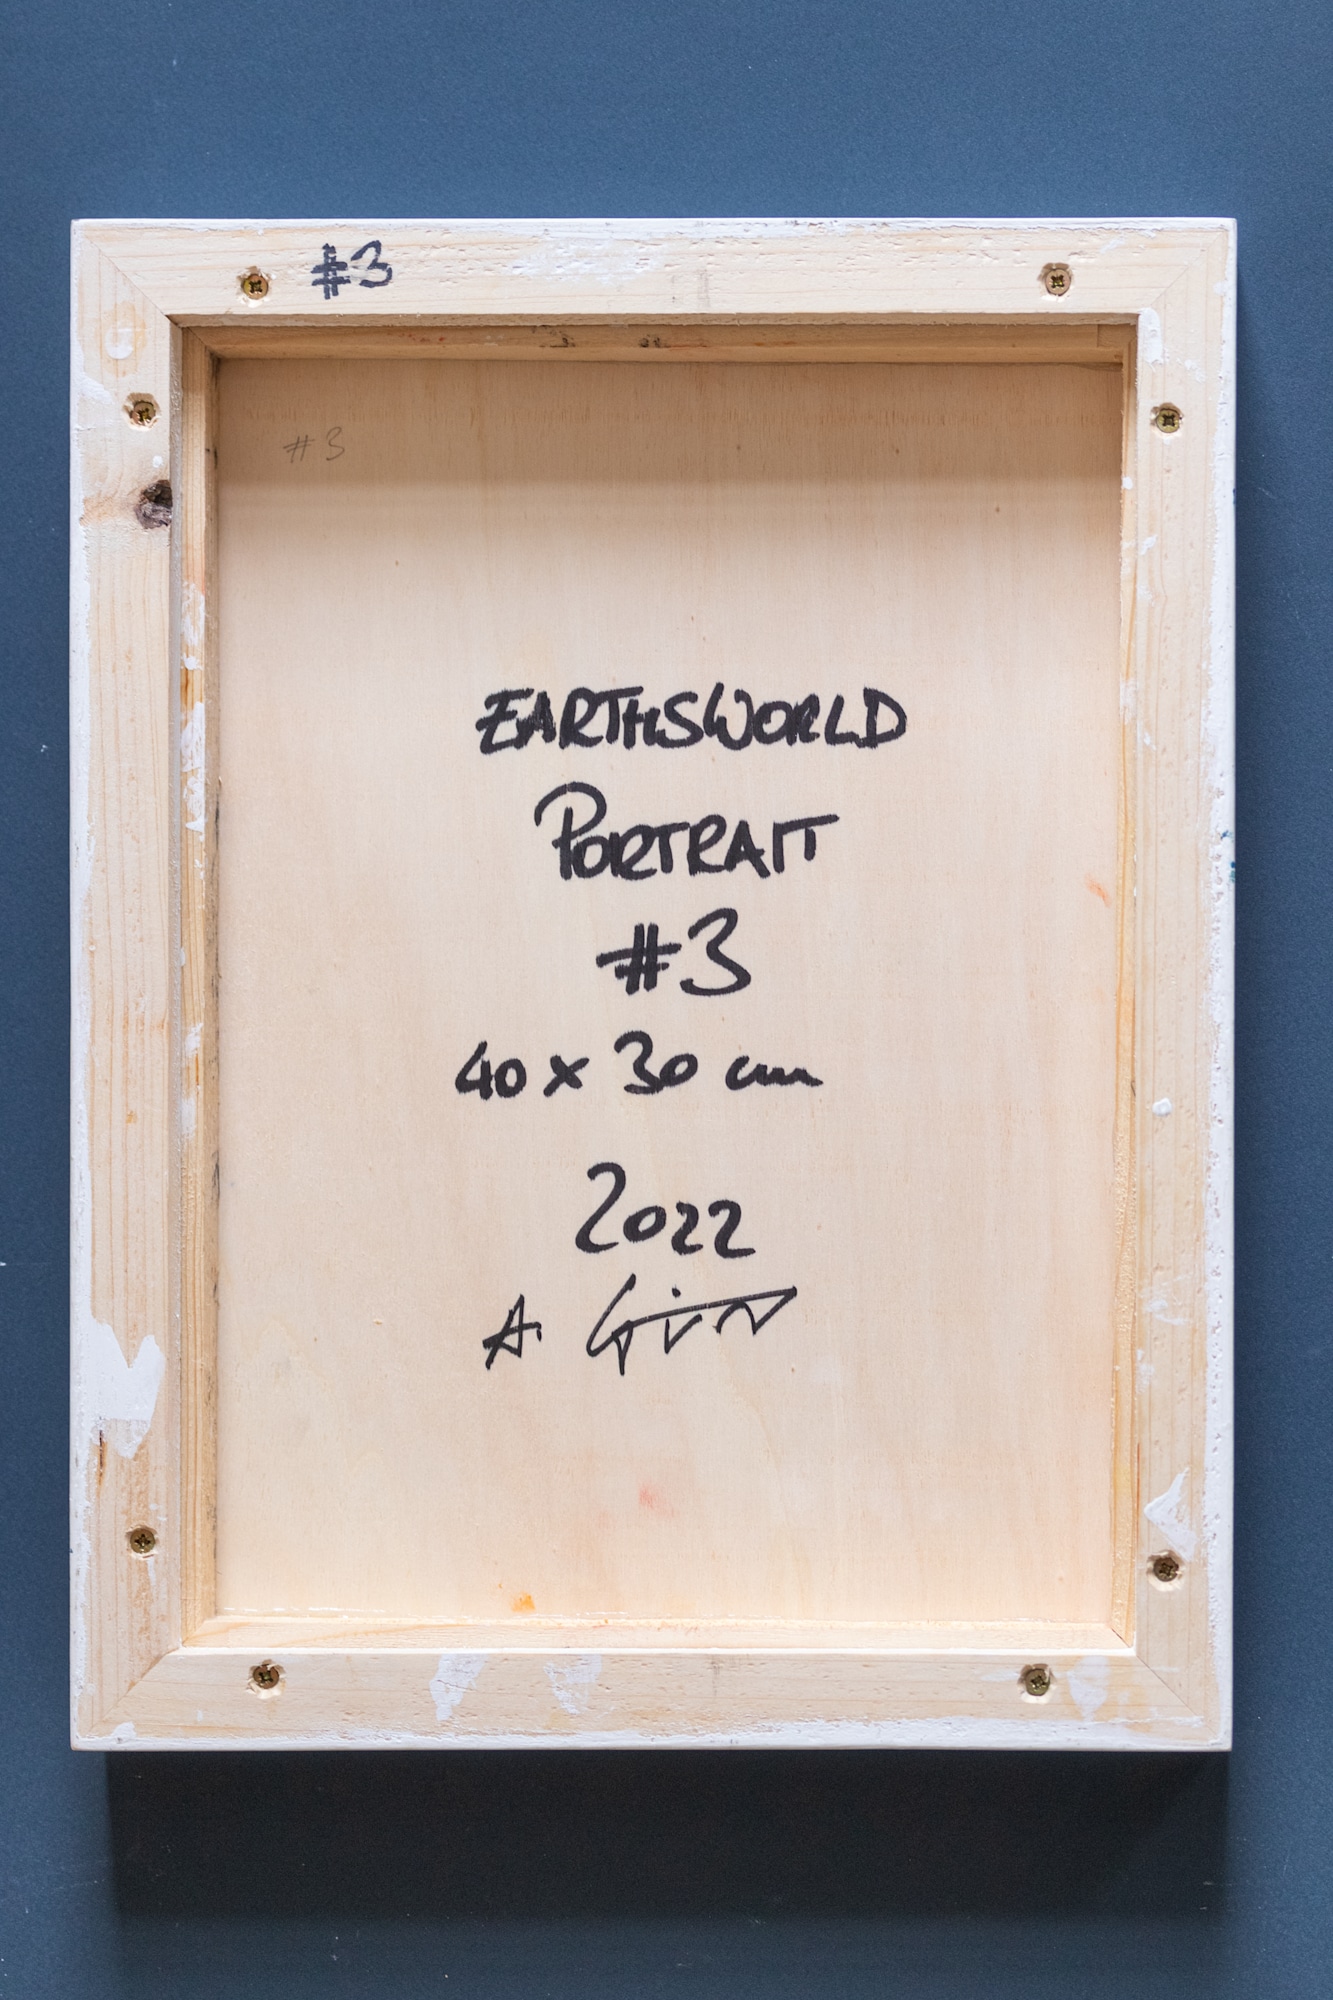 #3
#3
EARTHSWORLD
PORTRAIT
#3
40 x 30 cm
2022
A.